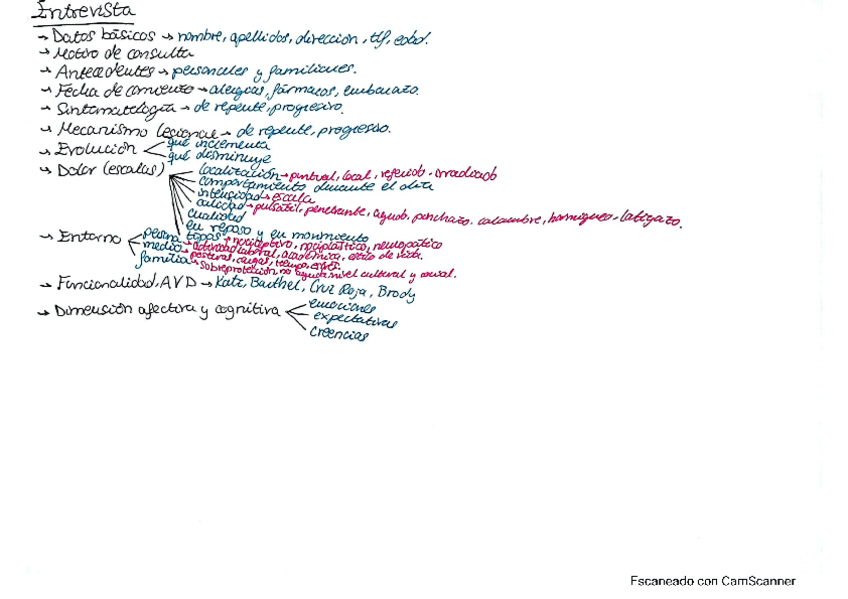 Entrevista
→ Datos básicos → nombre, apellidos, dirección, tlf, edad.
→ Motivo de consulta
→ Antecedentes → personales y familiares.
→ Fecha de comienzo → alergias, fármacos, embarazo.
→ Sintomatología → de repente, progresivo.
→ Mecanismo lesional → de repente, progresivo.
→ Evolución
qué incrementa
qué disminuye
→ Dolor (escalas)
localización → puntual, local, referido, irradiado
comportamiento durante el día
intensidad → escala
calidad → pulsátil, penetrante, agudo, pinchazo, calambre, hormigueo, latigazo.
cualidad
en reposo y en movimiento
tipos → nociceptivo, nociplástico, neuropático
→ Entorno
persona → actividad laboral, académica, estilo de vida.
medio → posturas, cargas, tiempo, estrés.
familia → sobreprotección, no ayuda, nivel cultural y social.
→ Funcionalidad, AVD → Katz, Barthel, Cruz Roja, Brody
→ Dimensión afectiva y cognitiva
emociones
expectativas
creencias
Escaneado con CamScanner